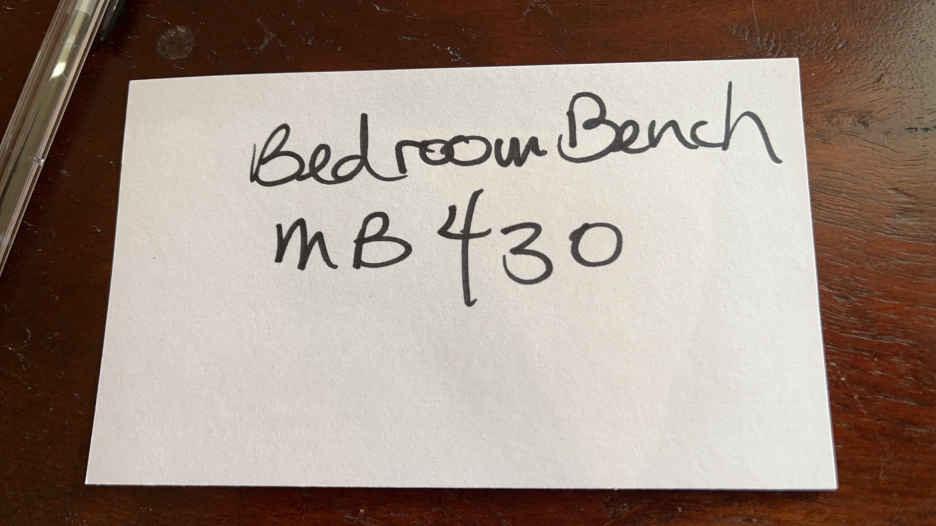 Bedroom Bench
MB 430